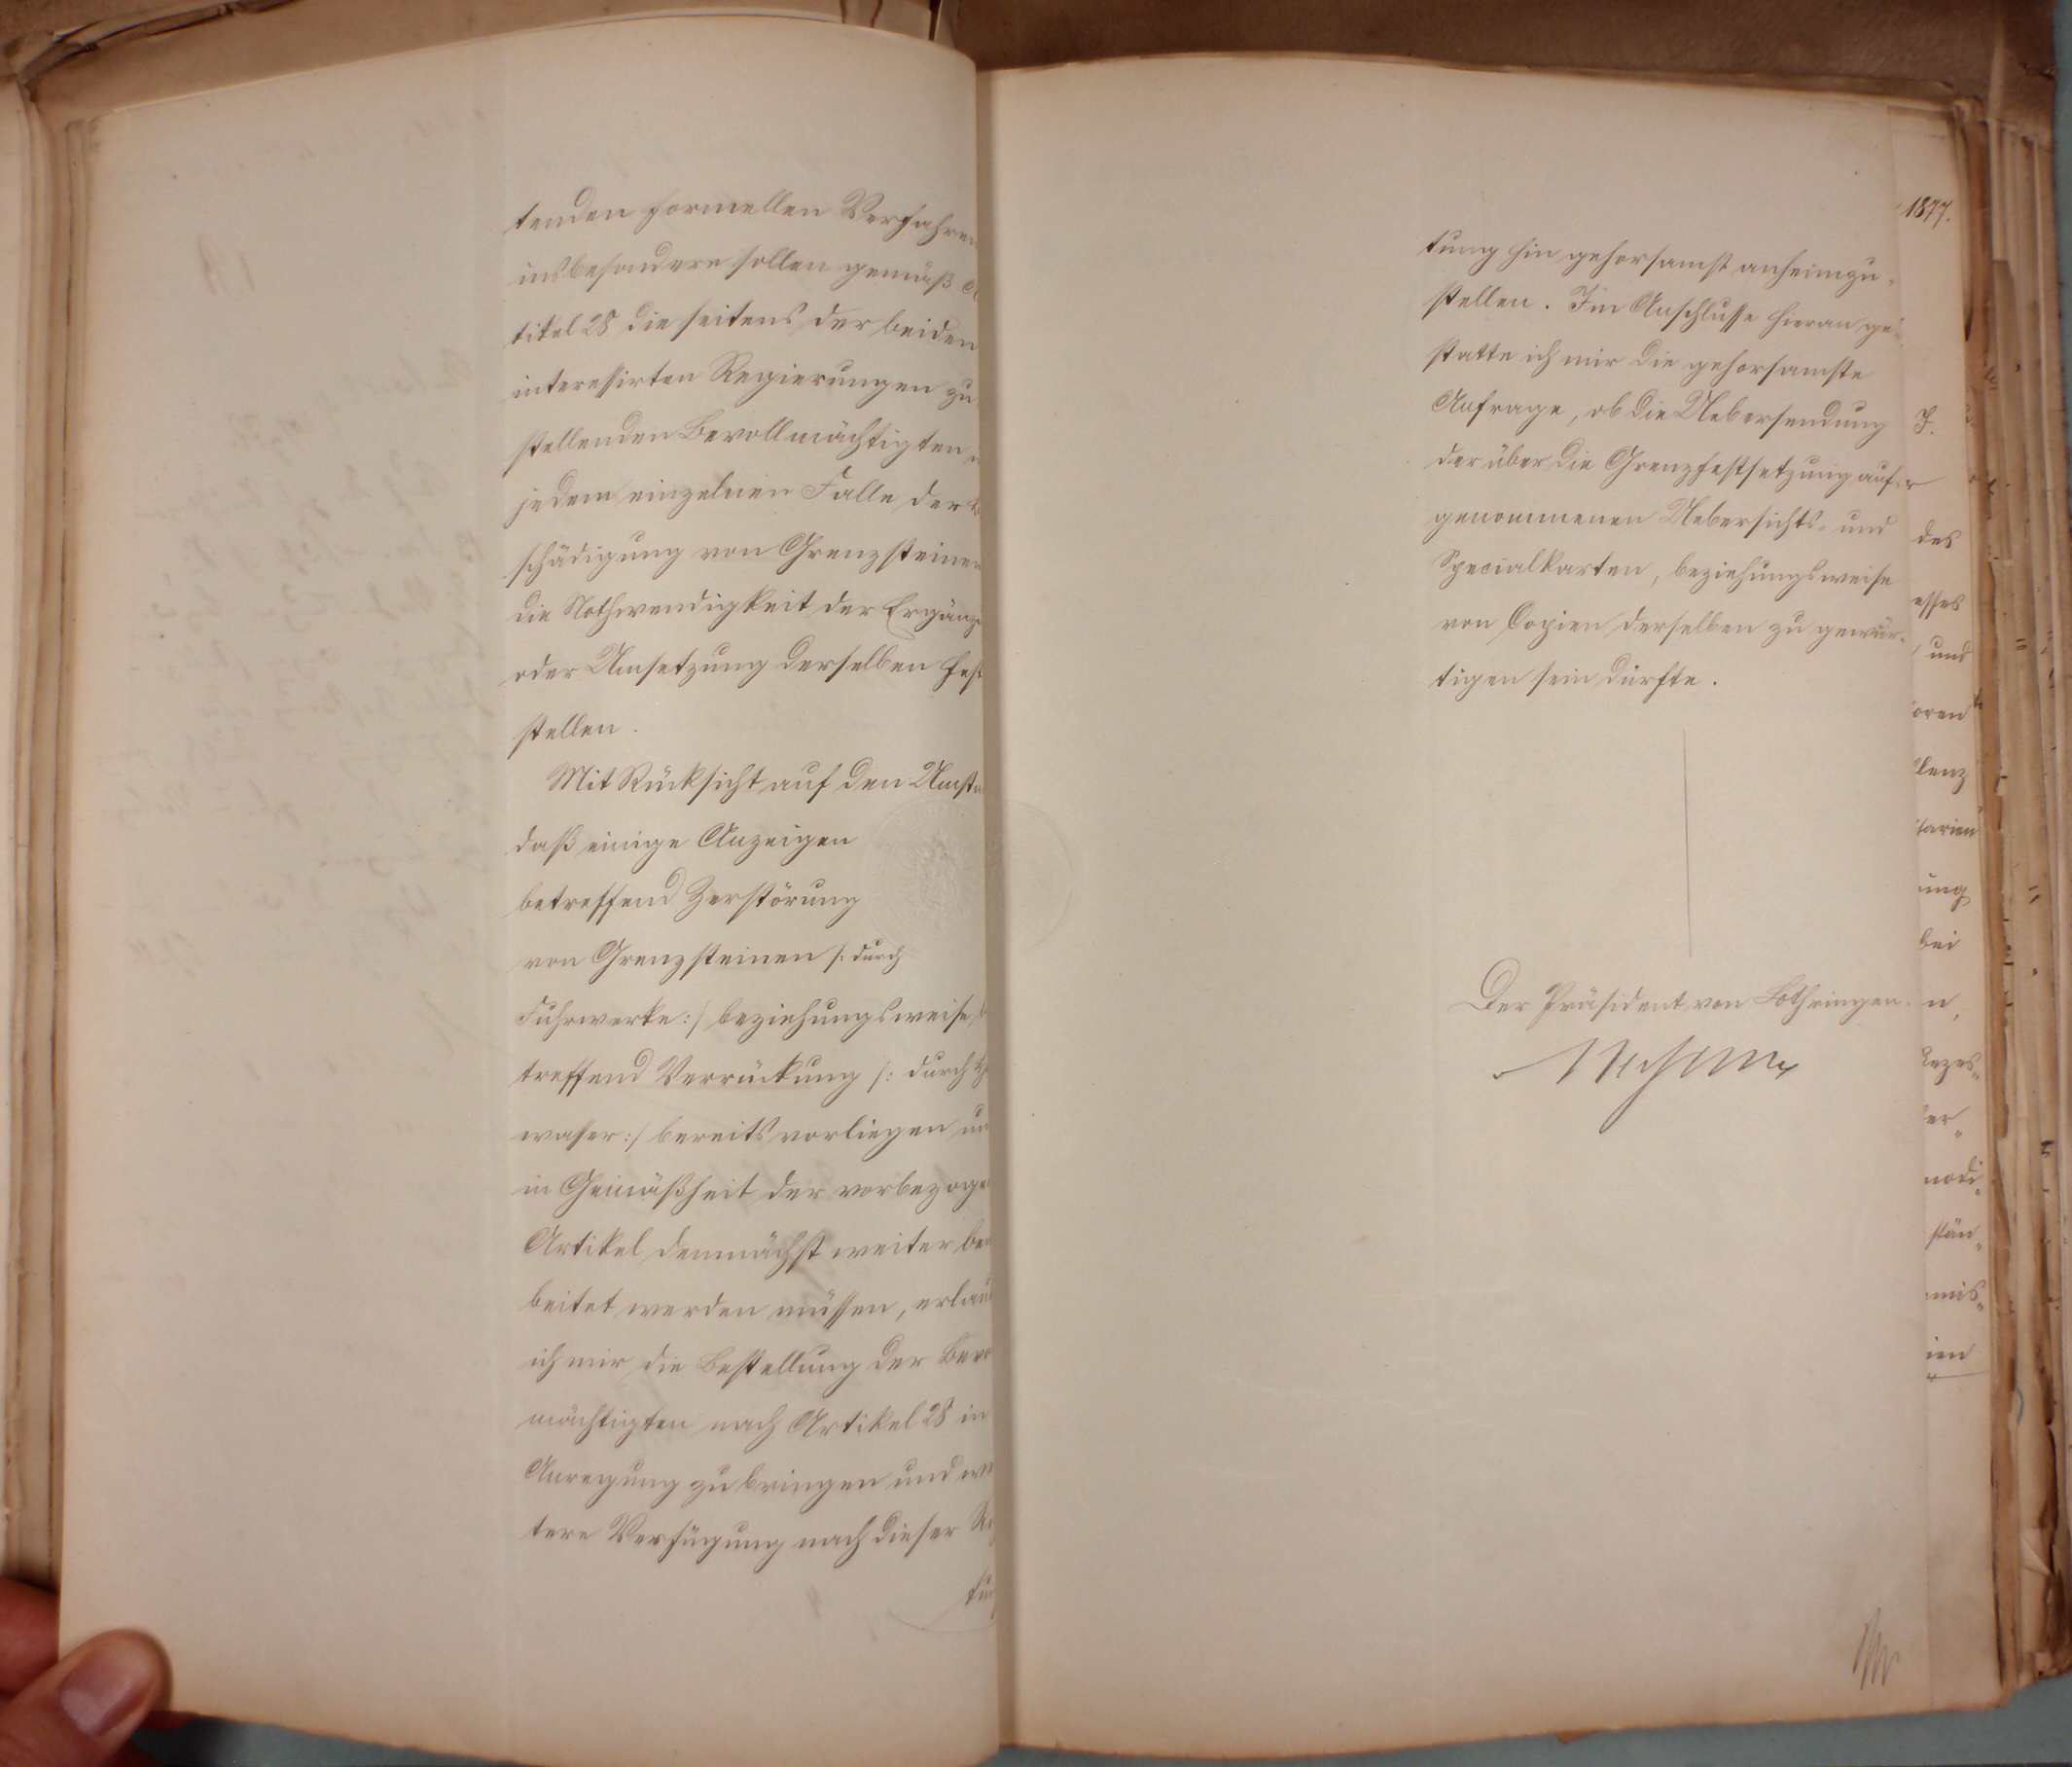 tenden formellen Verfahren
insbesondere sollen gemäß
titel 28 die seitens der beiden
interessirten Regierungen zu
stellenden Bevollmächtigten
jedem einzelnen Falle der
schädigung von Grenzsteinen
die Nothwendigkeit der Ergänz
oder Umsetzung derselben fest
stellen.
Mit Rücksicht auf den Umsta
daß einige Anzeigen
betreffend Zerstörung
von Grenzsteinen /: durch
Fuhrwerke :/ beziehungsweise
treffend Verrückung /: durch
wasser :/ bereits vorliegen un
in Gemäßheit der vorbezoge
Artikel demnächst weiter be
beitet werden müssen, erlau
ich mir die Bestellung der Bevo
mächtigten nach Artikel 28 in
Anregung zu bringen und we
tere Verfügung nach dieser
tun
tung hin gehorsamst anheimzu-
stellen. Im Anschlusse hieran ge-
statte ich mir die gehorsamste
Anfrage, ob die Uebersendung
der über die Grenzfestsetzung auf-
genommenen Uebersichts- und
Specialkarten, beziehungsweise
von Copien derselben zu gewär-
tigen sein dürfte.
Der Präsident von Lothringen.
1877.
J.
des
esses
und
oren
lenz
tarien
ung
bei
n,
er„
nodi„
stän„
mis„
ien